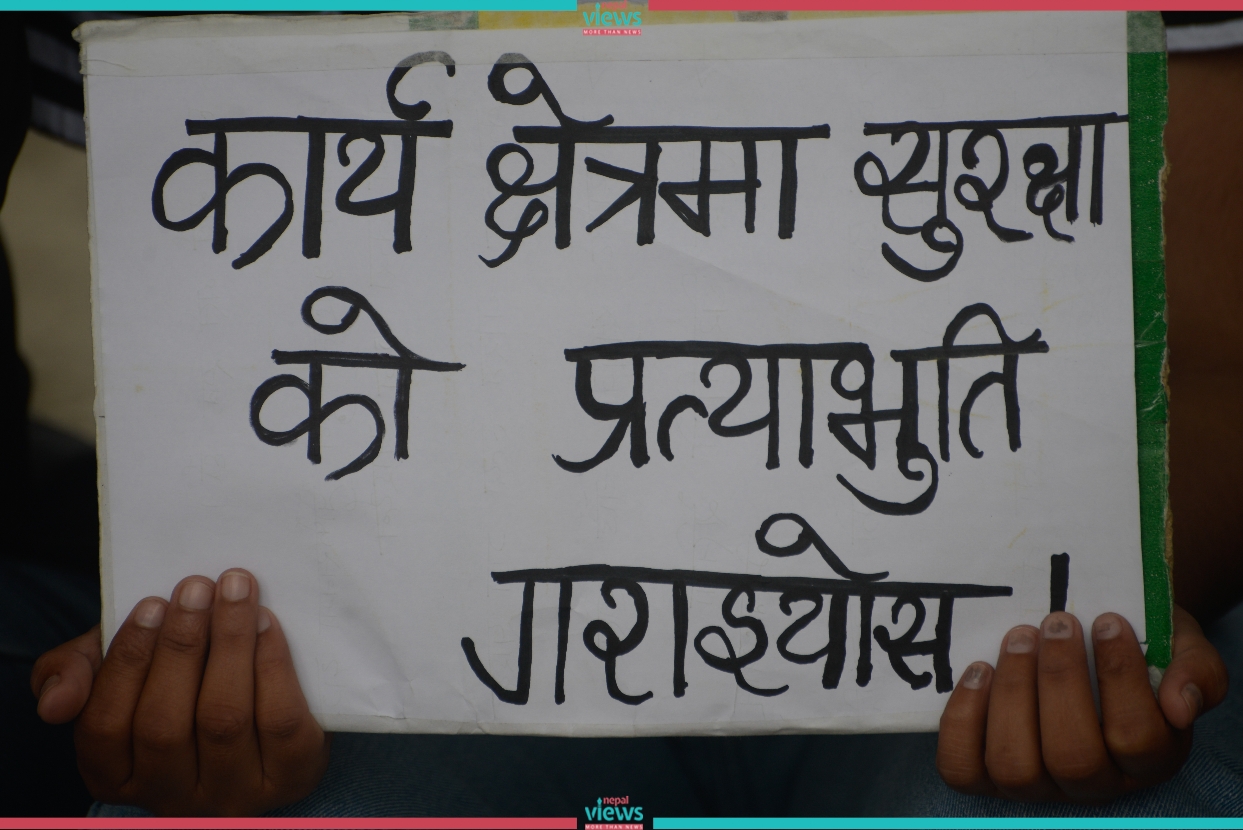 views
MORE THAN NEWS
कार्य क्षेत्रमा सुरक्षा
को प्रत्याभुति
गराइयोस !
nepal
views
MORE THAN NEWS